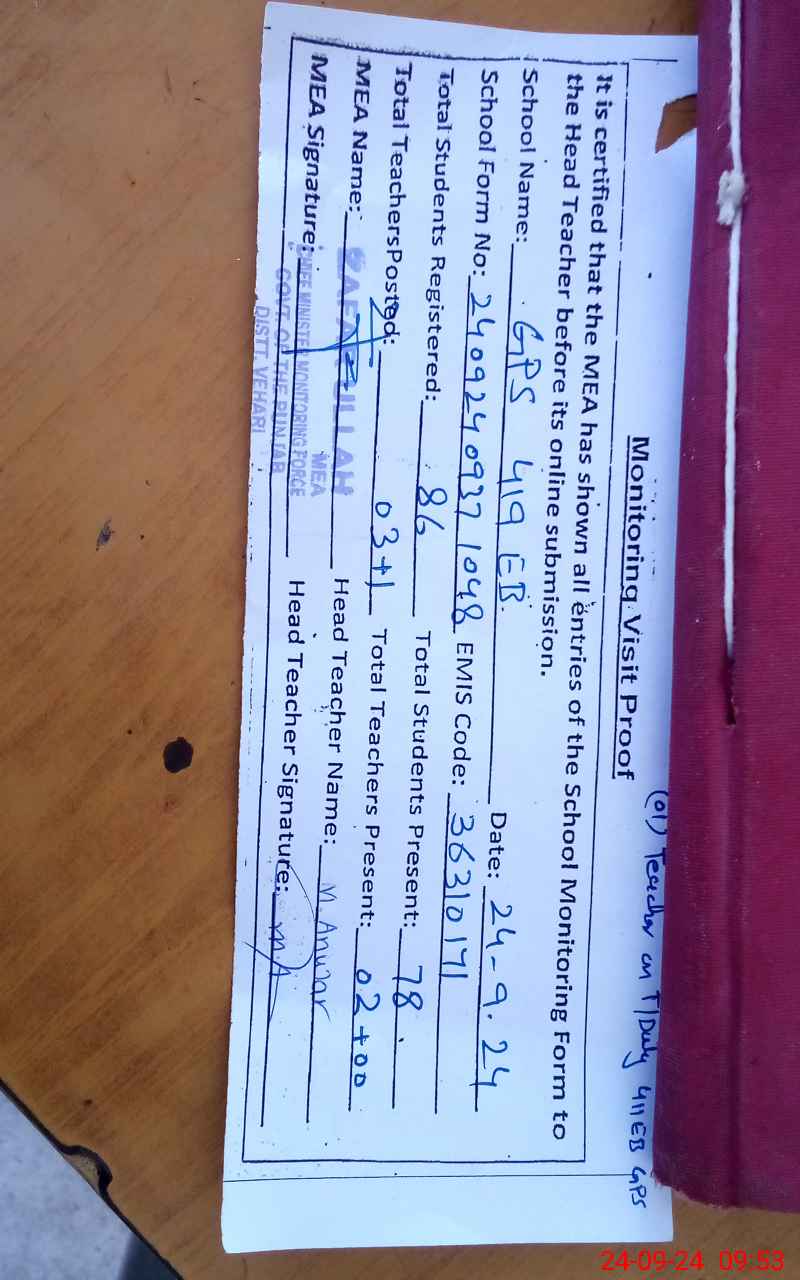 (01) Teacher on T/Duty 411 EB GPS
Monitoring Visit Proof
It is certified that the MEA has shown all entries of the School Monitoring Form to
the Head Teacher before its online submission.
School Name: GPS 419 EB. Date: 24-9.24
School Form No: 2409240937 1048 EMIS Code: 36310171
Total Students Registered: 86 Total Students Present: 78
Total Teachers Posted: 03+1 Total Teachers Present: 02+00
MEA Name: Head Teacher Name: M. Anwar
MEA
MEA Signature: CHIEF MINISTER MONITORING FORCE Head Teacher Signature:
GOVT. OF THE PUNJAB
DISTT. VEHARI
24-09-24 09:53